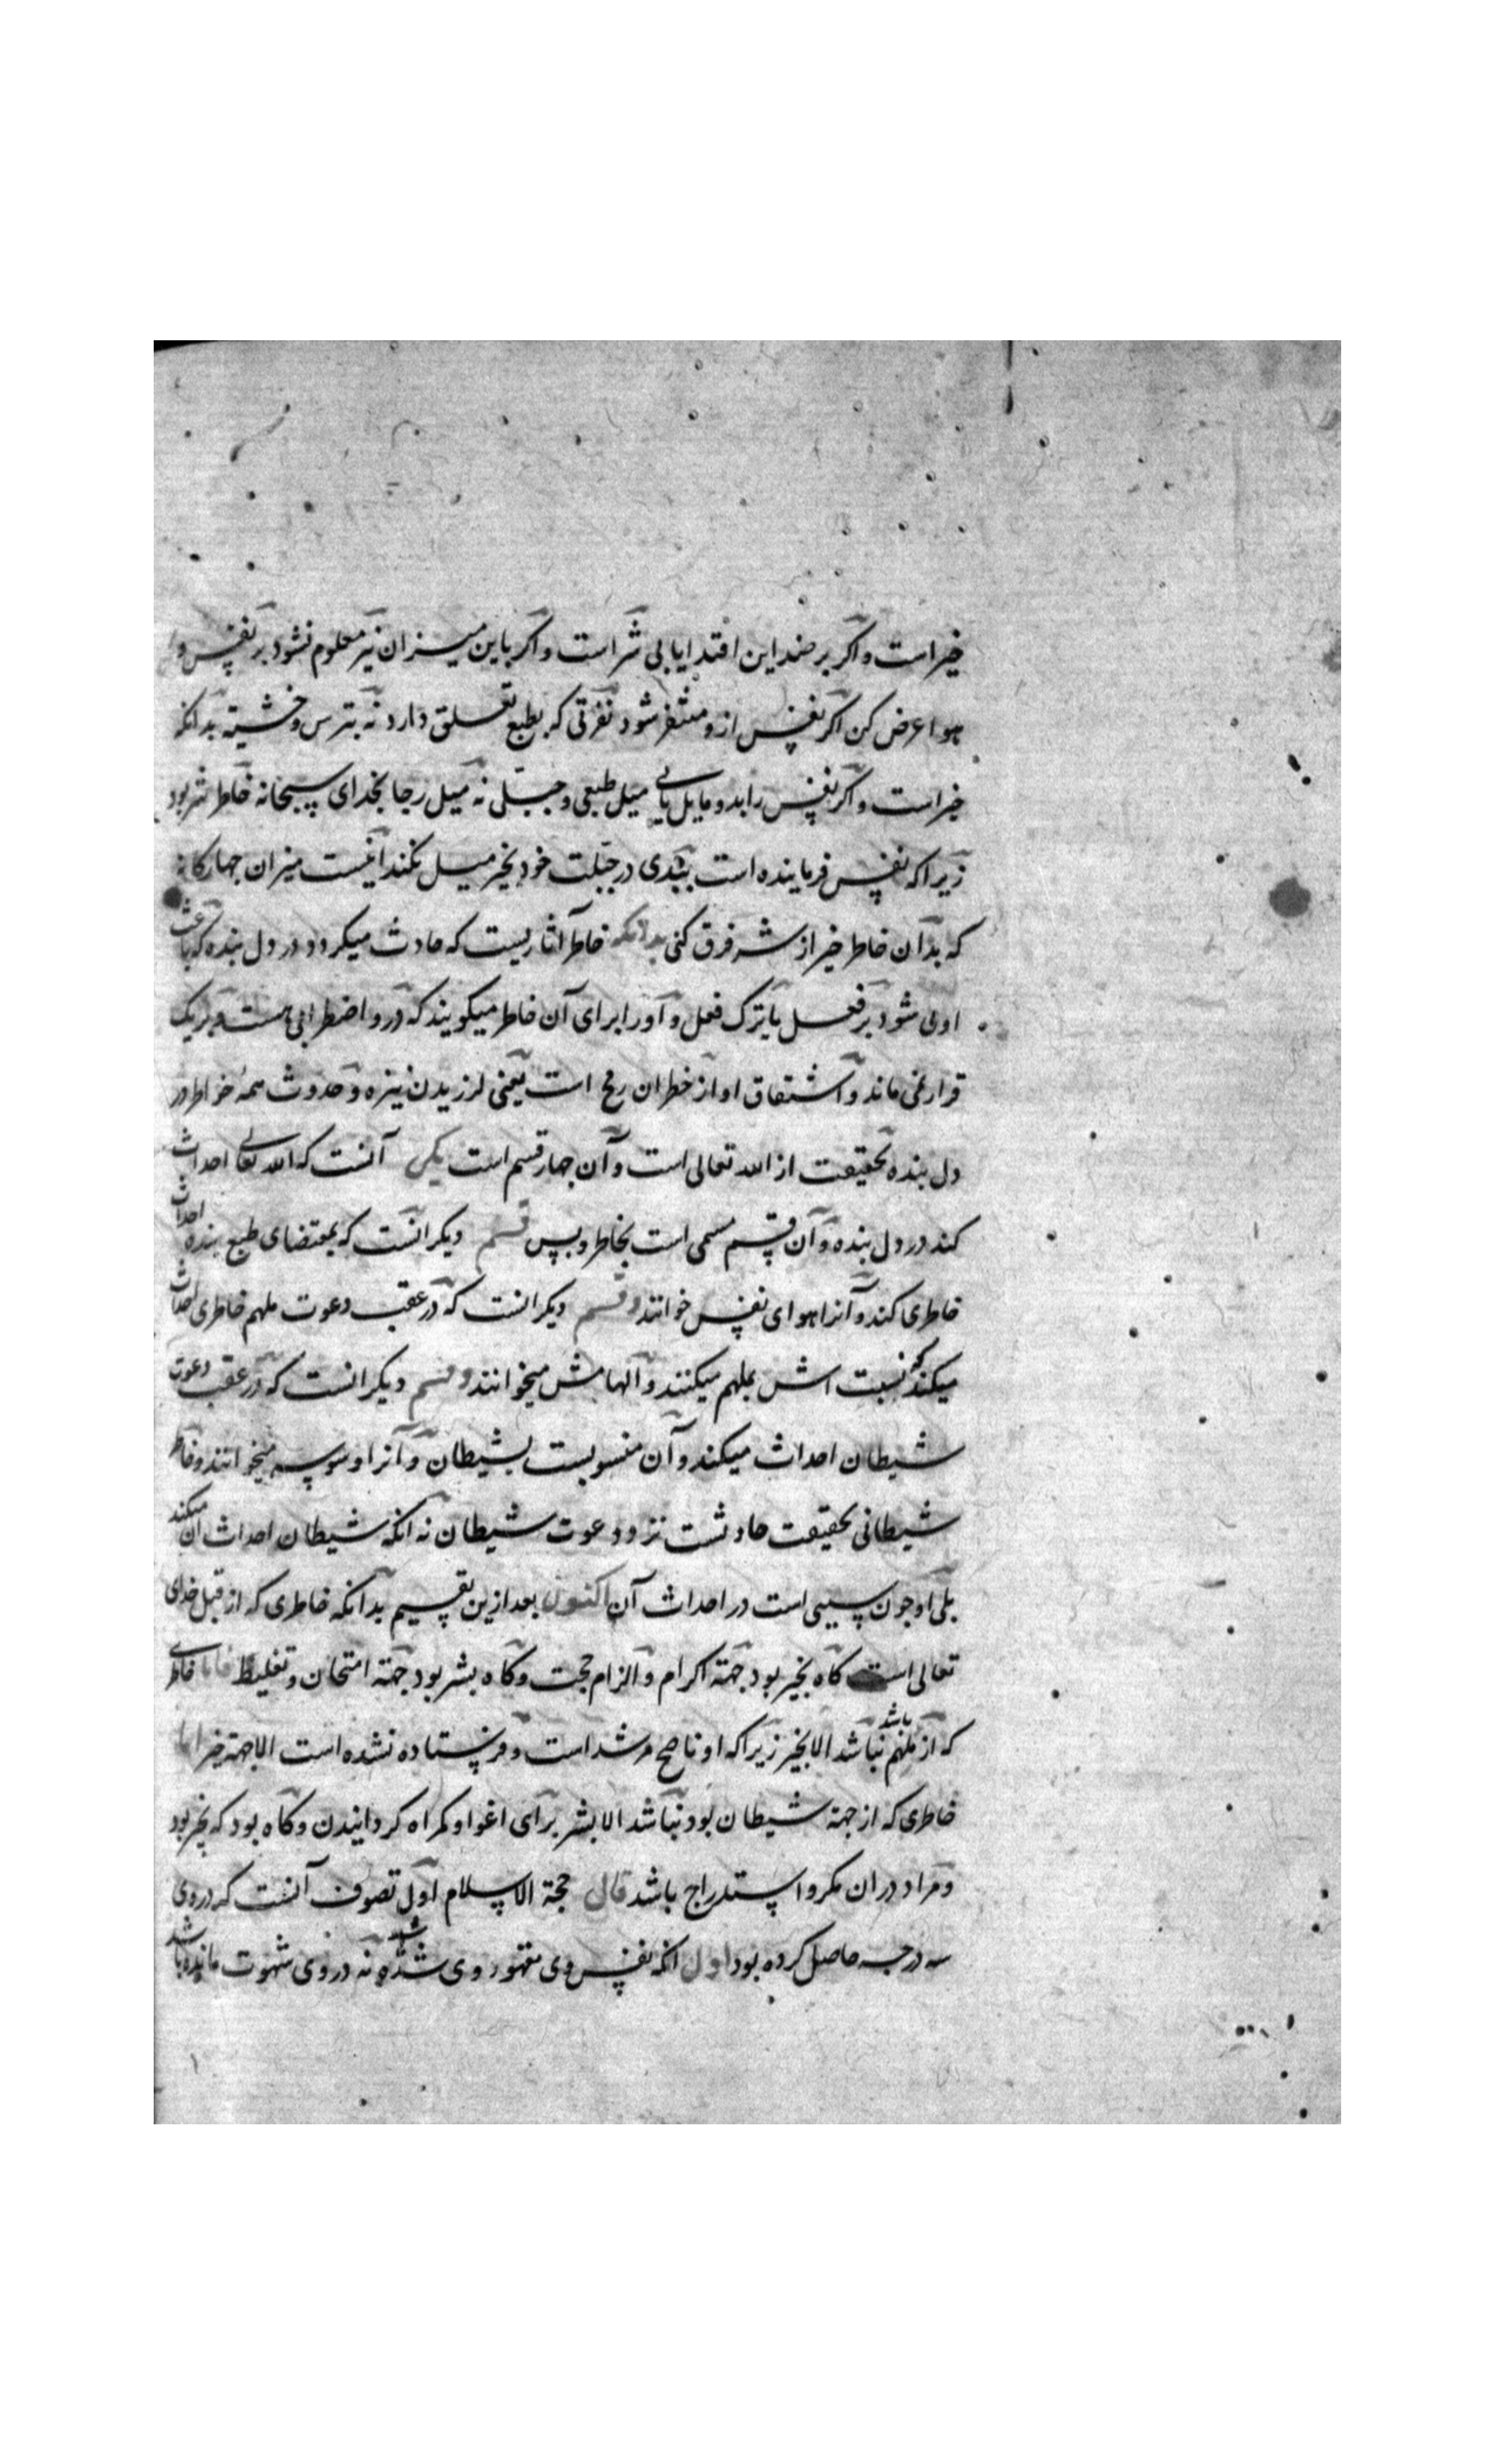 خیر است و اکر بر ضد این اقتدا یابی شر است و اکر باین میزان نیز معلوم نشود بر نفس و
هوا عرض کن اکر نفس ازو متنفر شود نفرتی که بطبع تعلق دارد نه بترس و خشیته بدانکه
خیر است و اکر نفس را بدو مایل یابی میل طبعی و جبلی نه میل رجا بخدای سبحانه خاطر شر بود
زیرا که نفس فرماینده است ببدی در جبلت خود بخیر میل نکند اینست میزان چهارکانه
که بدآن خاطر خیر از شر فرق کنی بدانکه خاطر اثاریست که حادث میکردد در دل بنده که باعث
اومی شود بر فعل یا ترک فعل و آورا برای آن خاطر میکویند که درو اضطرابی هست و بریک
قرار نمی ماند و اشتقاق او از خطران رمح است یعنی لرزیدن نیزه و حدوث همهٔ خواطر در
دل بنده بحقیقت از الله تعالی است و آن چهار قسم است یکی آنست که الله تعالی احداث
کند در دل بنده و آن قسم مسمی است بخاطر و بس قسم دیکر انست که بمقتضای طبع بنده احداث
خاطری کند و آنرا هوای نفس خوانند و قسم دیکر انست که در عقب دعوت ملهم خاطری احداث
میکند که نسبت اش بملهم میکنند و آلهامش میخوانند و قسم دیکر انست که در عقب دعوت
شیطان احداث میکند و آن منسوبست بشیطان و آنرا وسوسه میخوانند و خاطر
شیطانی بحقیقت حادثست نزد دعوت شیطان نه انکه شیطان احداث ان میکند
بلی او چون سببی است در احداث آن اکنون بعد ازین تقسیم بدآنکه خاطری که از قبل خدای
تعالی است کاه بخیر بود جهته اکرام و الزام حجت و کاه بشر بود جهته امتحان و تغلیظ فاما خاطری
که از ملهم باشد نباشد الا بخیر زیرا که او ناصح مرشد است و فرستاده نشده است الا جهته خیر اما
خاطری که از جهته شیطان بود نباشد الا بشر برای اغوا و کمراه کردانیدن و کاه بود که بخیر بود
و مراد در ان مکر و استدراج باشد قال حجة الاسلام اول تصوف آنست که در وی
سه درجه حاصل کرده بود اول انکه نفس وی مقهور وی شده باشد نه در وی شهوت مانده باشد